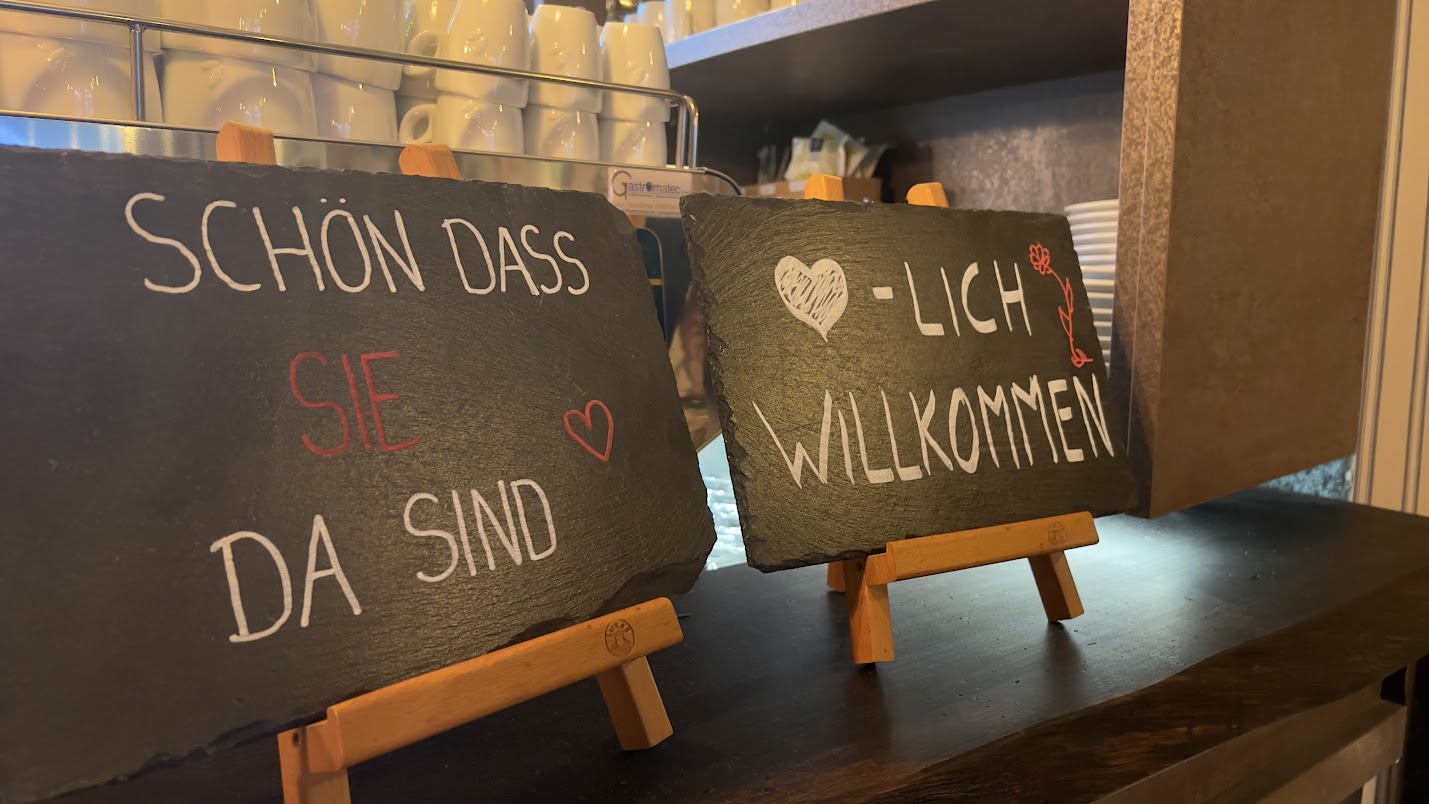 SCHÖN DASS
SIE
DA SIND
-LICH
WILLKOMMEN
Gastromatec